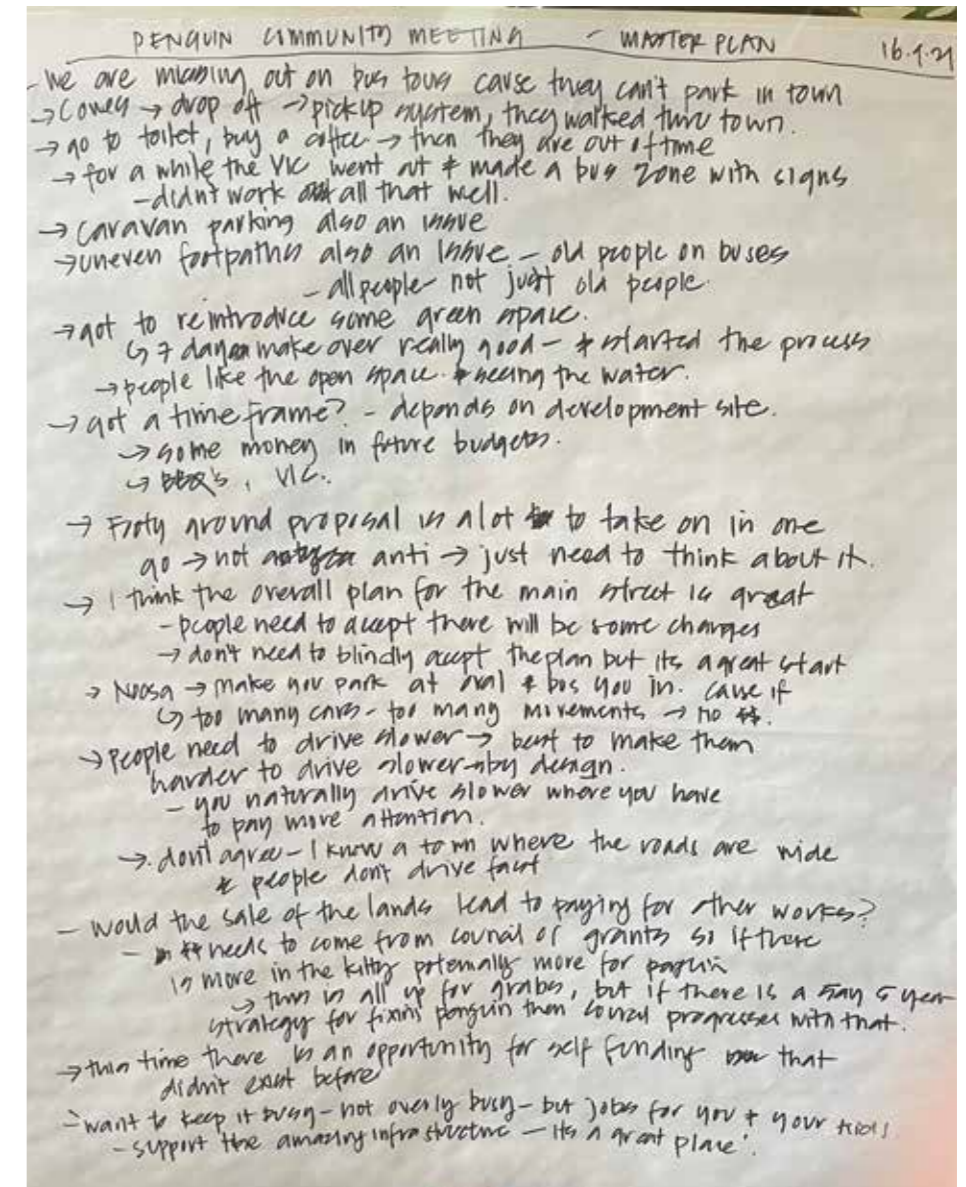 PENGUIN COMMUNITY MEETING - MASTER PLAN 16.9.21
- We are missing out on bus tours cause they can't park in town
→ Cowes → drop off → pickup system, they walked thru town.
→ go to toilet, buy a coffee → then they are out of time
→ for a while the VIC went out & made a bus zone with signs
- didn't work all that well.
→ caravan parking also an issue
→ uneven footpaths also an issue - old people on buses
- all people - not just old people.
→ got to reintroduce some green space.
↳ 7 day make over really good - & started the process
→ people like the open space & seeing the water.
→ got a time frame? - depends on development site.
→ some money in future budgets.
↳ BBQ's, VIC.
→ Footy ground proposal is a lot to take on in one
go → not anti → just need to think about it.
→ I think the overall plan for the main street is great
- people need to accept there will be some changes
→ don't need to blindly accept the plan but its a great start
→ Noosa → make you park at oval & bus you in. cause if
↳ too many cars - too many movements → no $$.
→ People need to drive slower → best to make them
harder to drive slower by design.
- you naturally drive slower where you have
to pay more attention.
→ don't agree - I know a town where the roads are wide
& people don't drive fast
- would the sale of the lands lead to paying for other works?
- $$ needs to come from council or grants so if there
is more in the kitty potentially more for penguin
→ this is all up for grabs, but if there is a say 5 year
strategy for fixing penguin then council progresses with that.
→ this time there is an opportunity for self funding that
didn't exist before
- want to keep it busy - not overly busy - but jobs for you & your kids
- support the amazing infrastructure - its a great place!